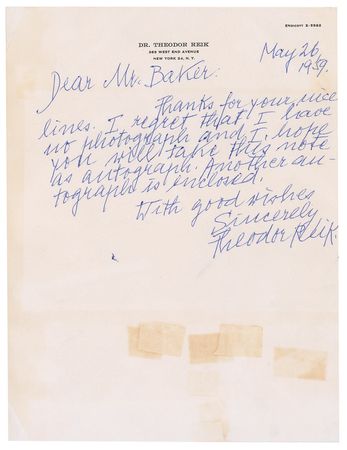 DR. THEODOR REIK
NEW YORK 24, N. Y.
May 26,
1959.
Dear Mr. Baker:
Thanks for your nice
lines. I regret that I have
no photograph and I hope
you will take this note
as autograph. Another au-
tograph is enclosed.
With good wishes
Sincerely
Theodor Reik